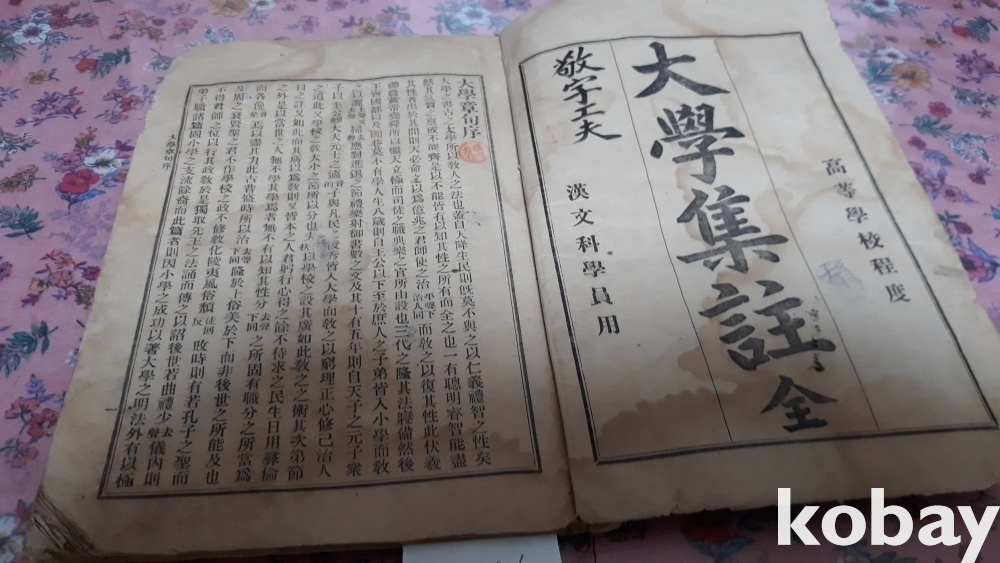 高等學校程度
大學集註全
敬字工夫
漢文科學員用
大學章句序
大學之書古之大學所以敎人之法也蓋自天降生民則旣莫不與之以仁義禮智之性矣
然其氣質之稟或不能齊是以不能皆有以知其性之所有而全之也一有聰明睿智能盡
其性者出於其間則天必命之以爲億兆之君師使之治平聲下治人同而敎之以復其性此伏羲
神農黃帝堯舜所以繼天立極而司徒之職典樂之官所由設也三代之隆其法寖備然後
王宮國都以及閭巷莫不有學人生八歲則自王公以下至於庶人之子弟皆入小學而敎
之以灑掃應對進退之節禮樂射御書數之文及其十有五年則自天子之元子衆
子以至公卿大夫元士之適音的子與凡民之俊秀皆入大學而敎之以窮理正心修己治人
之道此又學校之敎大小之節所以分也夫音扶以學校之設其廣如此敎之之術其次第節
目之詳又如此而其所以爲敎則又皆本之人君躬行心得之餘不待求之民生日用彝倫
之外是以當世之人無不學其學焉者無不有以知其性分去聲下同之所固有職分之所當爲
而各俛音免焉以盡其力此古昔盛時所以治去聲下同隆於上俗美於下而非後世之所能及也
及周之衰賢聖之君不作學校之政不修敎化陵夷風俗頹徒回反敗時則有若孔子之聖而
不得君師之位以行其政敎於是獨取先王之法誦而傳之以詔後世若曲禮少去聲儀內則
弟子職諸篇固小學之支流餘裔而此篇者則因小學之成功以著大學之明法外有以極
大學章句序
kobay